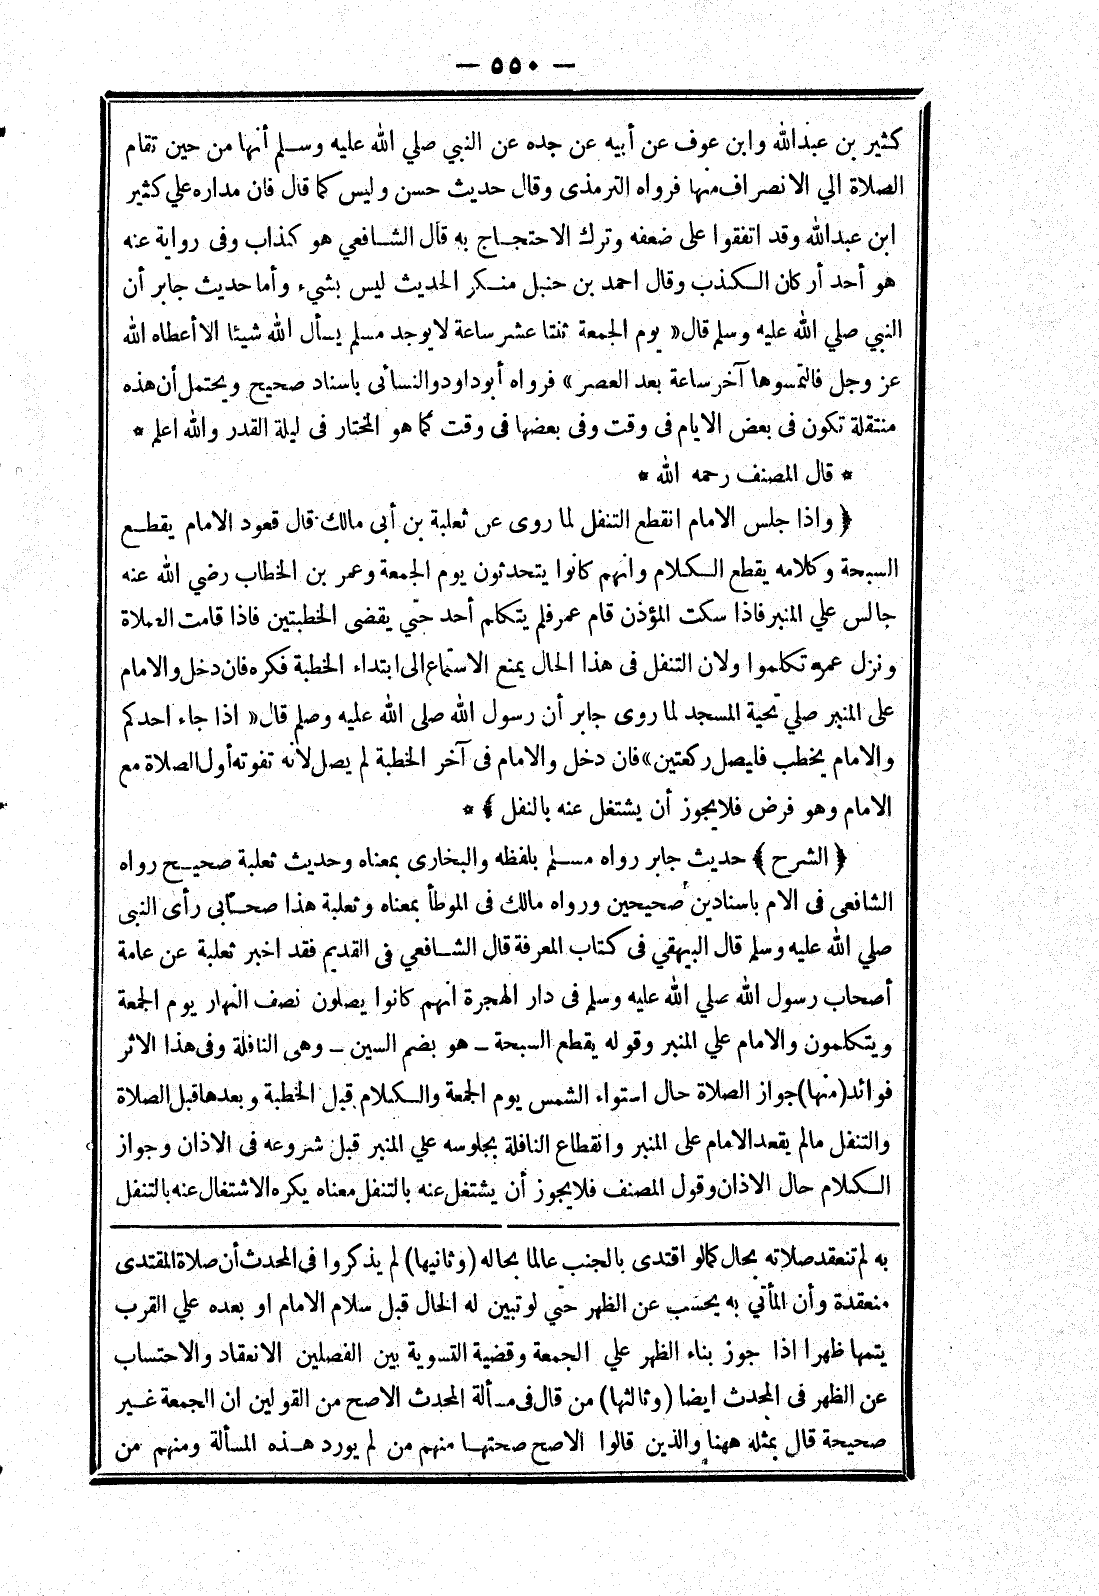 — ٥٥٠ —
كثير بن عبدالله وابن عوف عن أبيه عن جده عن النبي صلي الله عليه وسلم أنها من حين تقام
الصلاة الي الانصراف منها فرواه الترمذى وقال حديث حسن وليس كما قال فان مداره علي كثير
ابن عبدالله وقد اتفقوا على ضعفه وترك الاحتجاج به قال الشافعي هو كذاب وفى رواية عنه
هو أحد أركان الكذب وقال احمد بن حنبل منكر الحديث ليس بشيء وأما حديث جابر أن
النبي صلي الله عليه وسلم قال « يوم الجمعة ثنتا عشر ساعة لا يوجد مسلم يسأل الله شيئا الا أعطاه الله
عز وجل فالتمسوها آخر ساعة بعد العصر » فرواه أبو داود والنسائى باسناد صحيح ويحتمل أن هذه
منتقلة تكون فى بعض الايام فى وقت وفى بعضها فى وقت كما هو المختار فى ليلة القدر والله اعلم *
* قال المصنف رحمه الله *
﴿ واذا جلس الامام انقطع التنفل لما روى عن ثعلبة بن أبى مالك قال قعود الامام يقطع
السبحة وكلامه يقطع الكلام وانهم كانوا يتحدثون يوم الجمعة وعمر بن الخطاب رضي الله عنه
جالس علي المنبر فاذا سكت المؤذن قام عمر فلم يتكلم أحد حتى يقضى الخطبتين فاذا قامت الصلاة
ونزل عمر تكلموا ولان التنفل فى هذا الحال يمنع الاستماع الى ابتداء الخطبة فكره فان دخل والامام
على المنبر صلي تحية المسجد لما روى جابر أن رسول الله صلى الله عليه وصلم قال « اذا جاء احدكم
والامام يخطب فليصل ركعتين » فان دخل والامام فى آخر الخطبة لم يصل لانه تفوته أول الصلاة مع
الامام وهو فرض فلا يجوز أن يشتغل عنه بالنفل ﴾ *
﴿ الشرح ﴾ حديث جابر رواه مسلم بلفظه والبخارى بمعناه وحديث ثعلبة صحيح رواه
الشافعى فى الام باسنادين صحيحين ورواه مالك فى الموطأ بمعناه وثعلبة هذا صحابى رأى النبى
صلي الله عليه وسلم قال البيهقي فى كتاب المعرفة قال الشافعي فى القديم فقد اخبر ثعلبة عن عامة
أصحاب رسول الله صلي الله عليه وسلم فى دار الهجرة انهم كانوا يصلون نصف النهار يوم الجمعة
ويتكلمون والامام علي المنبر وقوله يقطع السبحة ـ هو بضم السين ـ وهى النافلة وفى هذا الاثر
فوائد (منها) جواز الصلاة حال استواء الشمس يوم الجمعة والكلام قبل الخطبة وبعدها قبل الصلاة
والتنفل مالم يقعد الامام على المنبر وانقطاع النافلة بجلوسه علي المنبر قبل شروعه فى الاذان وجواز
الكلام حال الاذان وقول المصنف فلا يجوز أن يشتغل عنه بالتنفل معناه يكره الاشتغال عنه بالتنفل
به لم تنعقد صلاته بحال كما لو اقتدى بالجنب عالما بحاله (وثانيها) لم يذكروا فى المحدث أن صلاة المقتدى
منعقدة وأن المأتي به يحسب عن الظهر حتى لو تبين له الحال قبل سلام الامام او بعده علي القرب
يتمها ظهرا اذا جوز بناء الظهر علي الجمعة وقضية التسوية بين الفصلين الانعقاد والاحتساب
عن الظهر فى المحدث ايضا (وثالثها) من قال فى مسألة المحدث الاصح من القولين ان الجمعة غير
صحيحة قال بمثله ههنا والذين قالوا الاصح صحتها منهم من لم يورد هذه المسألة ومنهم من